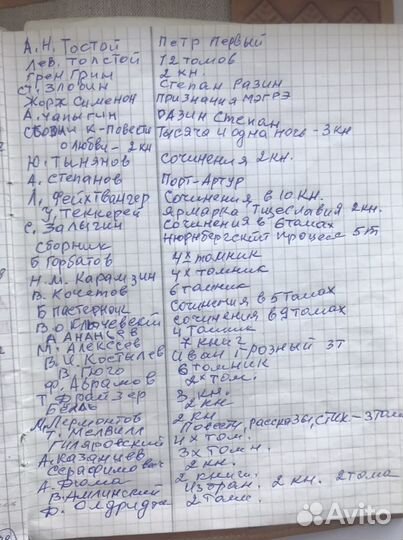 А.Н. Тостой Петр Первый
Лев. Толстой 12 томов
Грен Грин 2 кн.
Ст. Злобин Степан Разин
Жорж Сименон Признания МЭГРЭ
А. Чапыгин Разин Степан
Сборник-Повести Тысяча и одна ночь - 3 кн
о любви - 2 кн
Ю. Тынянов Сочинения 2 кн.
А. Степанов Порт-Артур
Л. Фейхтвангер Сочинения в 10 кн.
У. Теккерей Ярмарка Тщеславия 2 кн.
С. Залыгин Сочинения в 6 томах
сборник Нюрнбергский процесс 5 т
Б Горбатов 4х томник
Н.М. Карамзин 4х томник
В. Кочетов 6 томник
Б пастернак Сочинения в 5 томах
В.О Ключевский сочинения в 9 томах
А Ананьев 4 томник
М. Алексеев 7 книг
В.И. Костылев Иван Грозный 3т
В. Гюго 6 томник
Ф. Абрамов том.
Т. Драйзер 3 кн.
Бёлль 2 кн.
М. Лермонтов 2 кн
Т. Мелвилл Повести, рассказы, стих - 3 тома
Гиляровский 4х том.
А. Казанцев 3х томн.
Серафимович 2 кн.
А. Дюма 2 книги
В. Амлинский Избран. 2 кн. 2 тома
Ф. Олдридж 2 том.
Avito